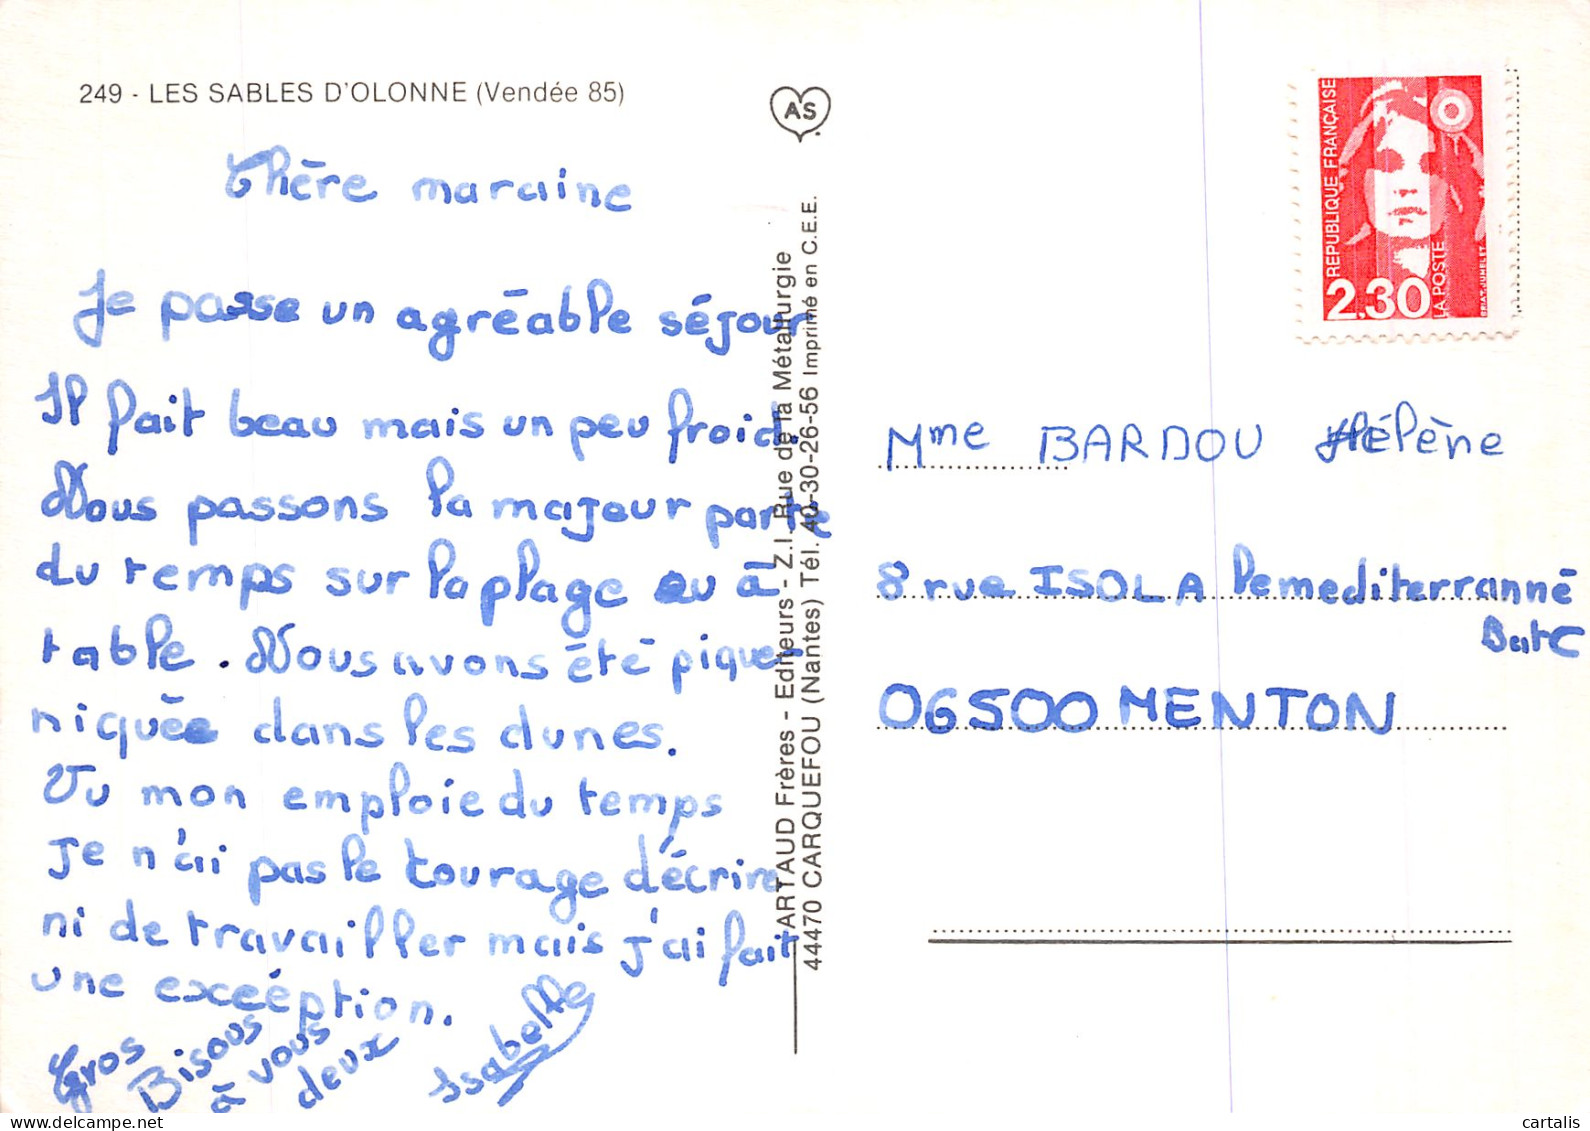 249 - LES SABLES D'OLONNE (Vendée 85)
AS
Chère maraine
Je passe un agréable séjour
Il fait beau mais un peu froid.
Nous passons la majeur partie
du temps sur la plage ou à
table. Nous avons été pique-
niquée dans les dunes.
Vu mon emploie du temps
je n'ai pas le courage d'écrire
ni de travailler mais j'ai fait
une excéeption.
Gros
Bisous
à vous
deux
Isabelle
ARTAUD Frères - Editeurs - Z.I. Rue de la Métallurgie
44470 CARQUEFOU (Nantes) Tél. 40-30-26-56 Imprimé en C.E.E.
REPUBLIQUE FRANÇAISE
2,30
LA POSTE
BRIAT-JUMELET
Mme BARDOU Hélène
8 rue ISOLA le mediterranné
Bat C
06500 MENTON
www.delcampe.net
cartalis